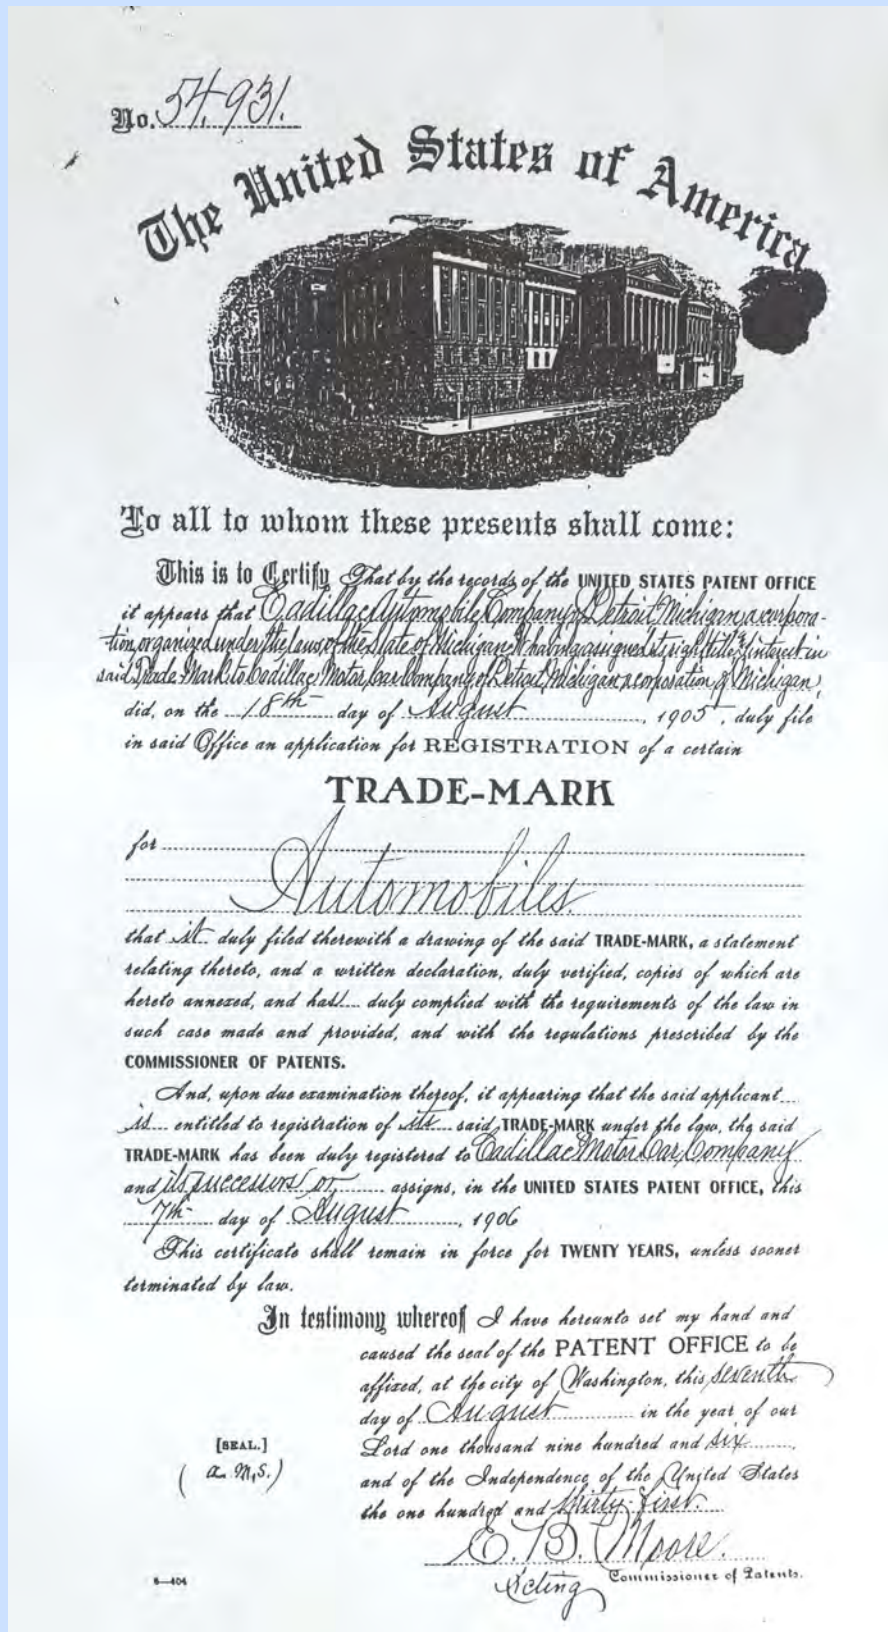 No. 54,931.
The United States of America
To all to whom these presents shall come:
This is to Certify That by the records of the UNITED STATES PATENT OFFICE
it appears that Cadillac Automobile Company, of Detroit, Michigan, a corpora-
tion organized under the laws of the State of Michigan, having assigned its right, title & interest in
said Trade-Mark to Cadillac Motor Car Company, of Detroit, Michigan, a corporation of Michigan,
did, on the 18th day of August, 1905, duly file
in said Office an application for REGISTRATION of a certain
TRADE-MARK
for
Automobiles.
that it duly filed therewith a drawing of the said TRADE-MARK, a statement
relating thereto, and a written declaration, duly verified, copies of which are
hereto annexed, and has duly complied with the requirements of the law in
such case made and provided, and with the regulations prescribed by the
COMMISSIONER OF PATENTS.
And, upon due examination thereof, it appearing that the said applicant
is entitled to registration of its said TRADE-MARK under the law, the said
TRADE-MARK has been duly registered to Cadillac Motor Car Company
and its successors or assigns, in the UNITED STATES PATENT OFFICE, this
7th day of August, 1906
This certificate shall remain in force for TWENTY YEARS, unless sooner
terminated by law.
In testimony whereof I have hereunto set my hand and
caused the seal of the PATENT OFFICE to be
affixed, at the city of Washington, this seventh
day of August in the year of our
[SEAL.] Lord one thousand nine hundred and six,
(a. M, S.) and of the Independence of the United States
the one hundred and thirty-first.
E. B. Moore.
Acting Commissioner of Patents.
6—404